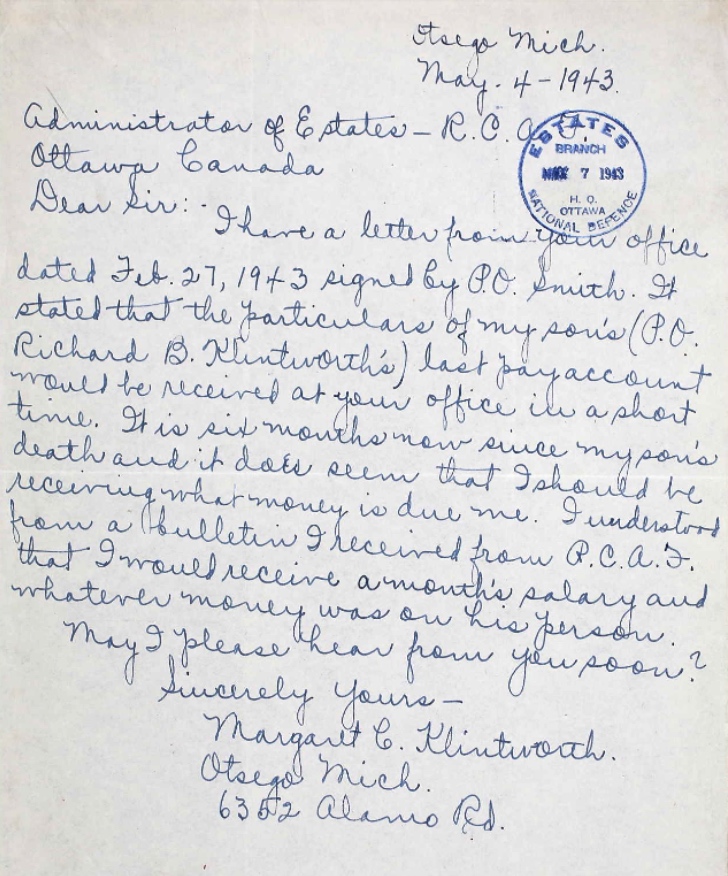 Otsego Mich.
May. 4-1943.
Administrator of Estates - R.C.A.F.
Ottawa Canada
Dear Sir:-
I have a letter from your office
dated Feb. 27, 1943 signed by P.O. Smith. It
stated that the particulars of my son's (P.O.
Richard B. Klintworth's) last pay account
would be received at your office in a short
time. It is six months now since my son's
death and it does seem that I should be
receiving what money is due me. I understood
from a bulletin I received from R.C.A.F.
that I would receive a month's salary and
whatever money was on his person.
May I please hear from you soon?
Sincerely Yours -
Margaret C. Klintworth.
Otsego Mich.
6352 Alamo Rd.
ESTATES
BRANCH
7 1943
H. Q.
OTTAWA
NATIONAL DEFENCE